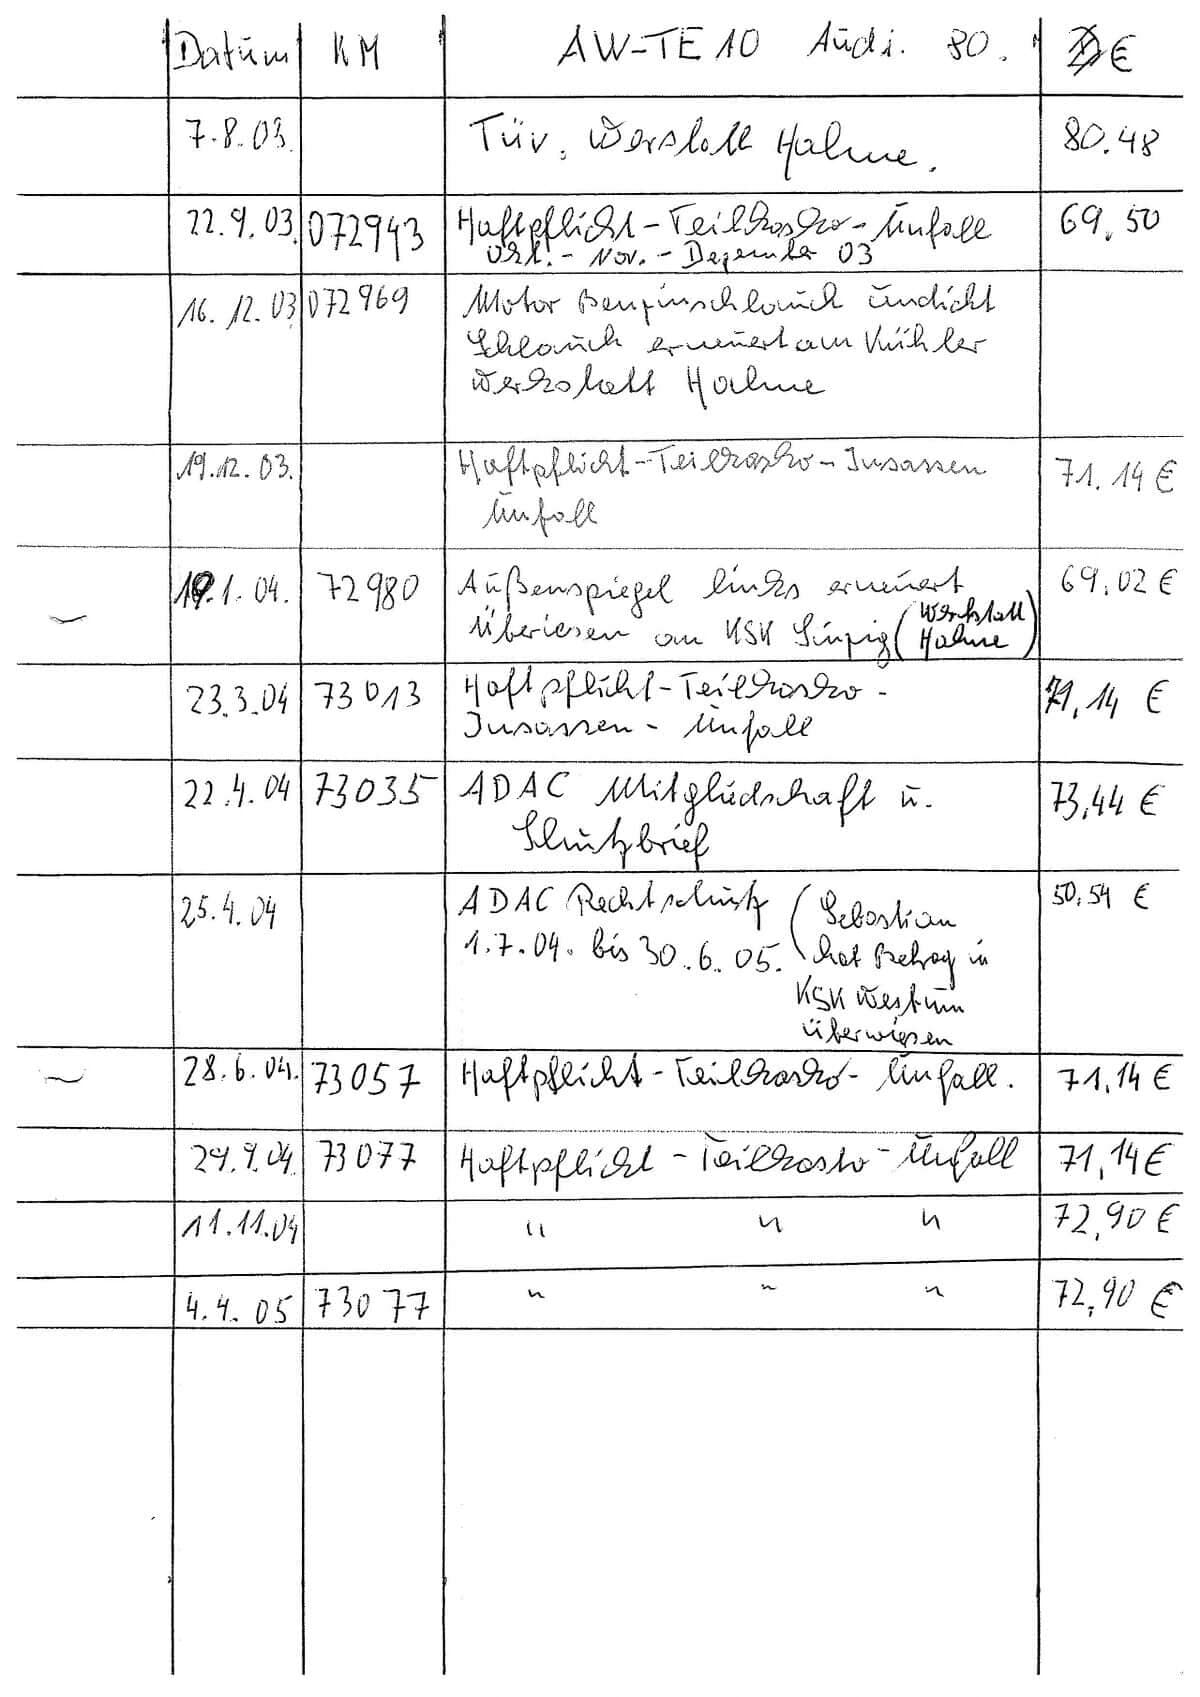 Datum KM AW-TE 10 Audi. 80. €
7.8.03. Tüv. Werstatt Halme. 80.48
22.9.03. 072943 Haftpflicht-Teilkasko-Unfall 69.50
Okt.-Nov.-Dezember 03
16.12.03 072969 Motor Benzinschlauch undicht
Schlauch erneuert am Kühler
Werkstatt Halme
19.12.03. Haftpflicht-Teilkasko-Insassen 71.14 €
Unfall
19.1.04. 72980 Außenspiegel links erneuert 69.02 €
Überiesen an KSK Sinzig (Werkstatt
Halme)
23.3.04 73013 Haftpflicht-Teilkasko- 71,14 €
Insassen-Unfall
22.4.04 73035 ADAC Mitgliedschaft u. 73,44 €
Schutzbrief
25.4.04 ADAC Rechtschutz (Sebastian 50.54 €
1.7.04. bis 30.6.05. hat Betrag in
KSK Westum
überwiesen
28.6.04. 73057 Haftpflicht-Teilkasko-Unfall. 71,14 €
29.9.04. 73077 Haftpflicht-Teilkasko-Unfall 71,14 €
11.11.04 " " " 72,90 €
4.4.05 73077 " " " 72,90 €